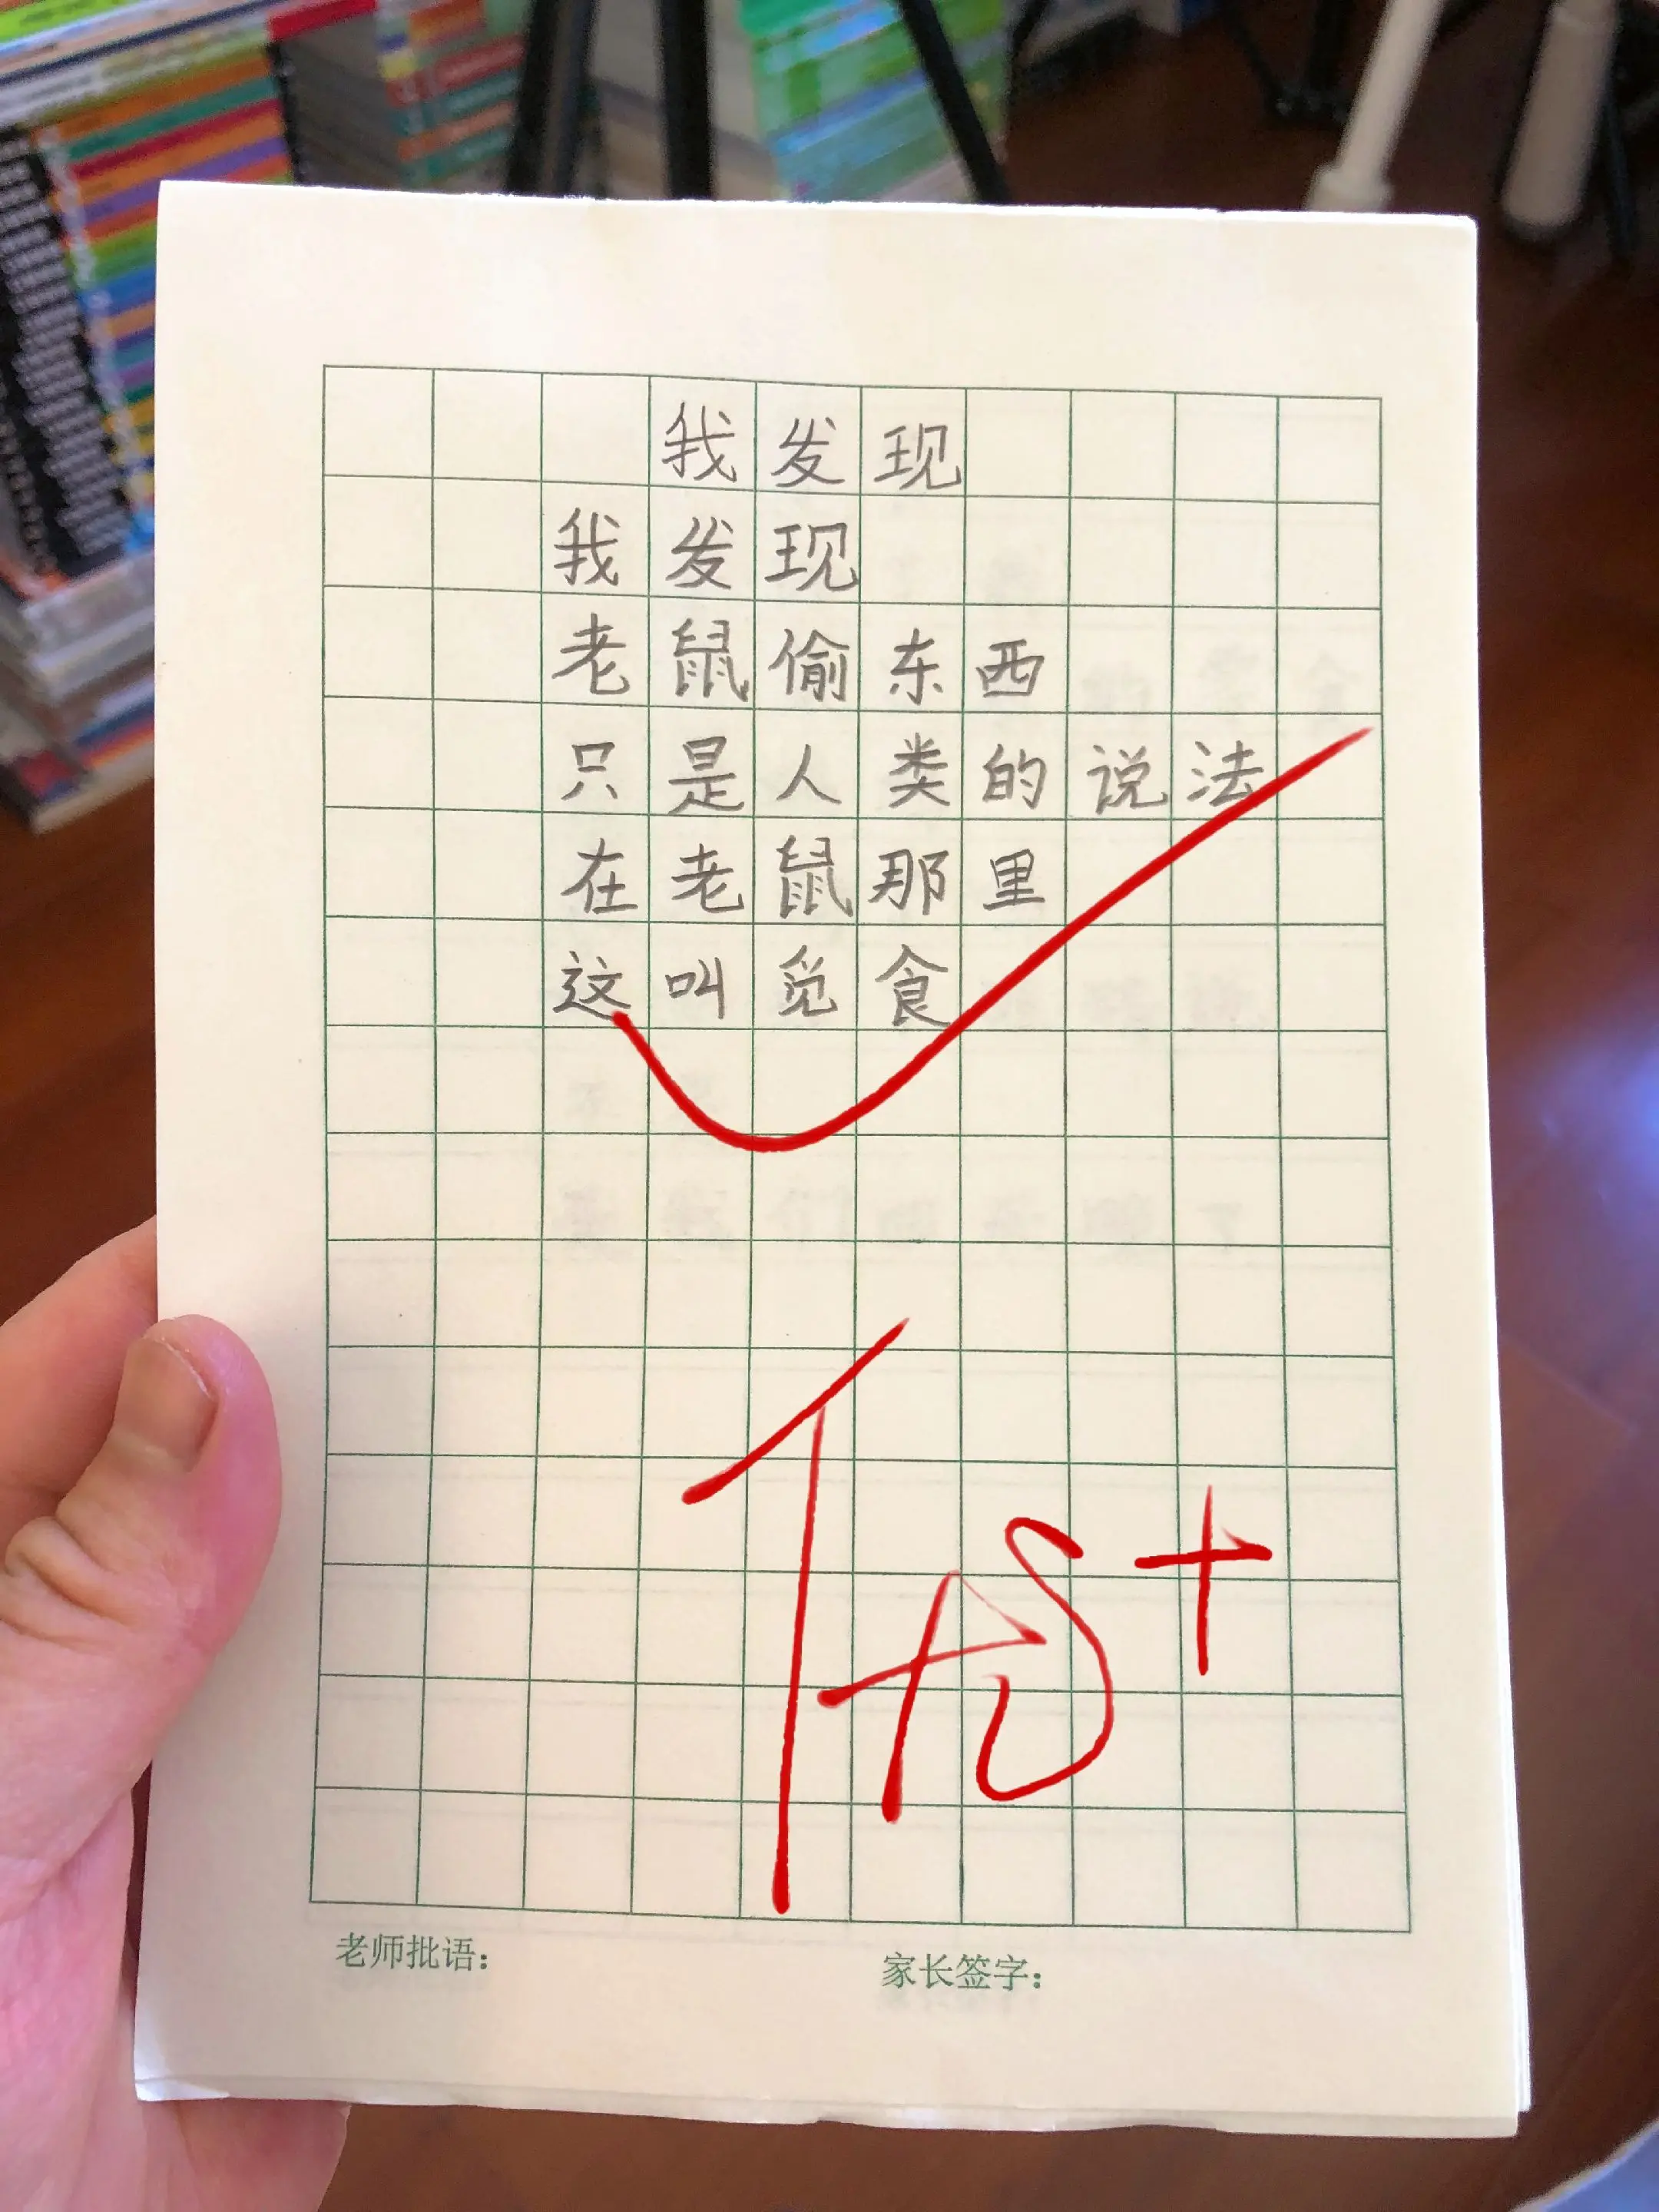 我发现
我发现
老鼠偷东西
只是人类的说法
在老鼠那里
这叫觅食
老师批语：
家长签字：